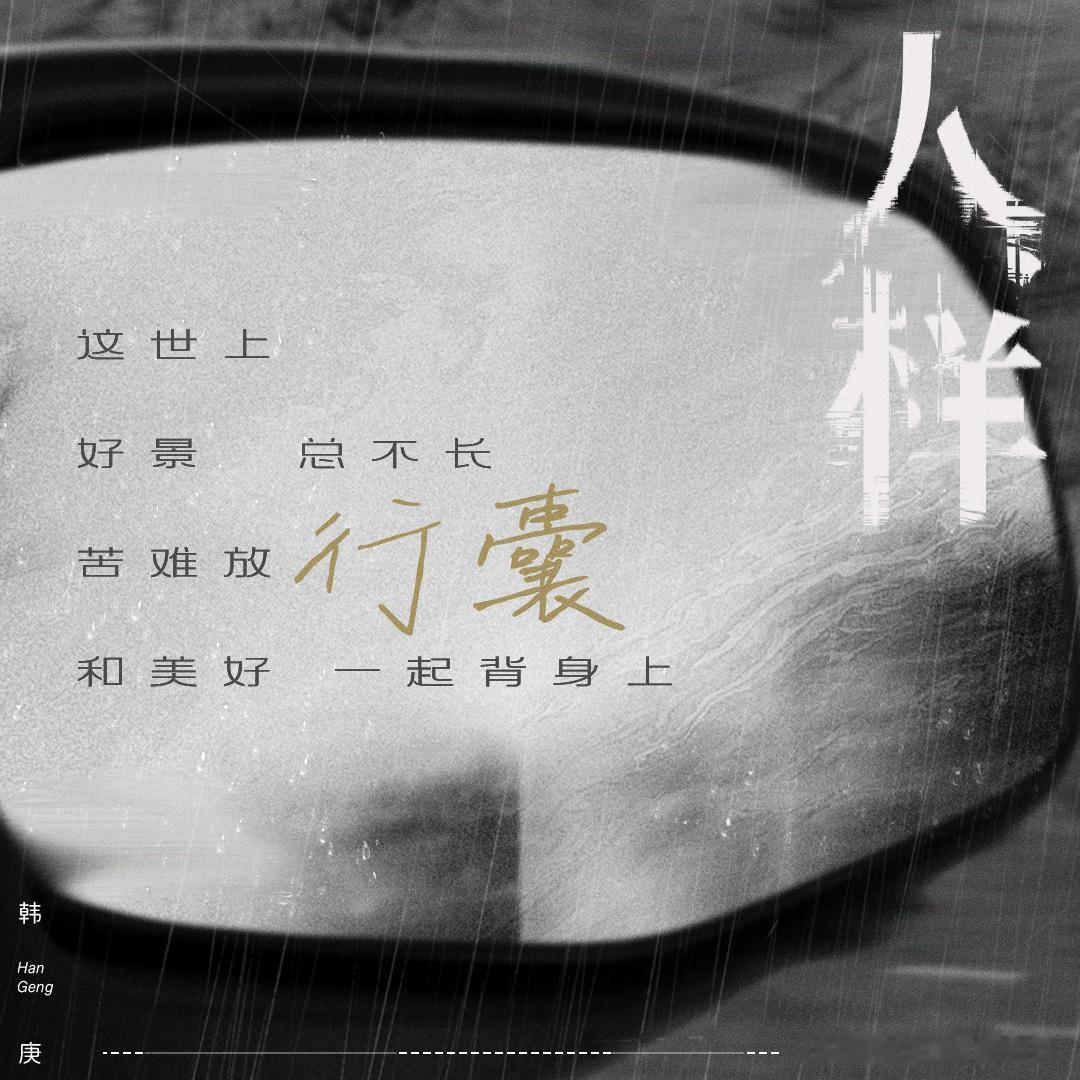 人样
这世上
好景 总不长
苦难放行囊
和美好 一起背身上
韩
Han
Geng
庚